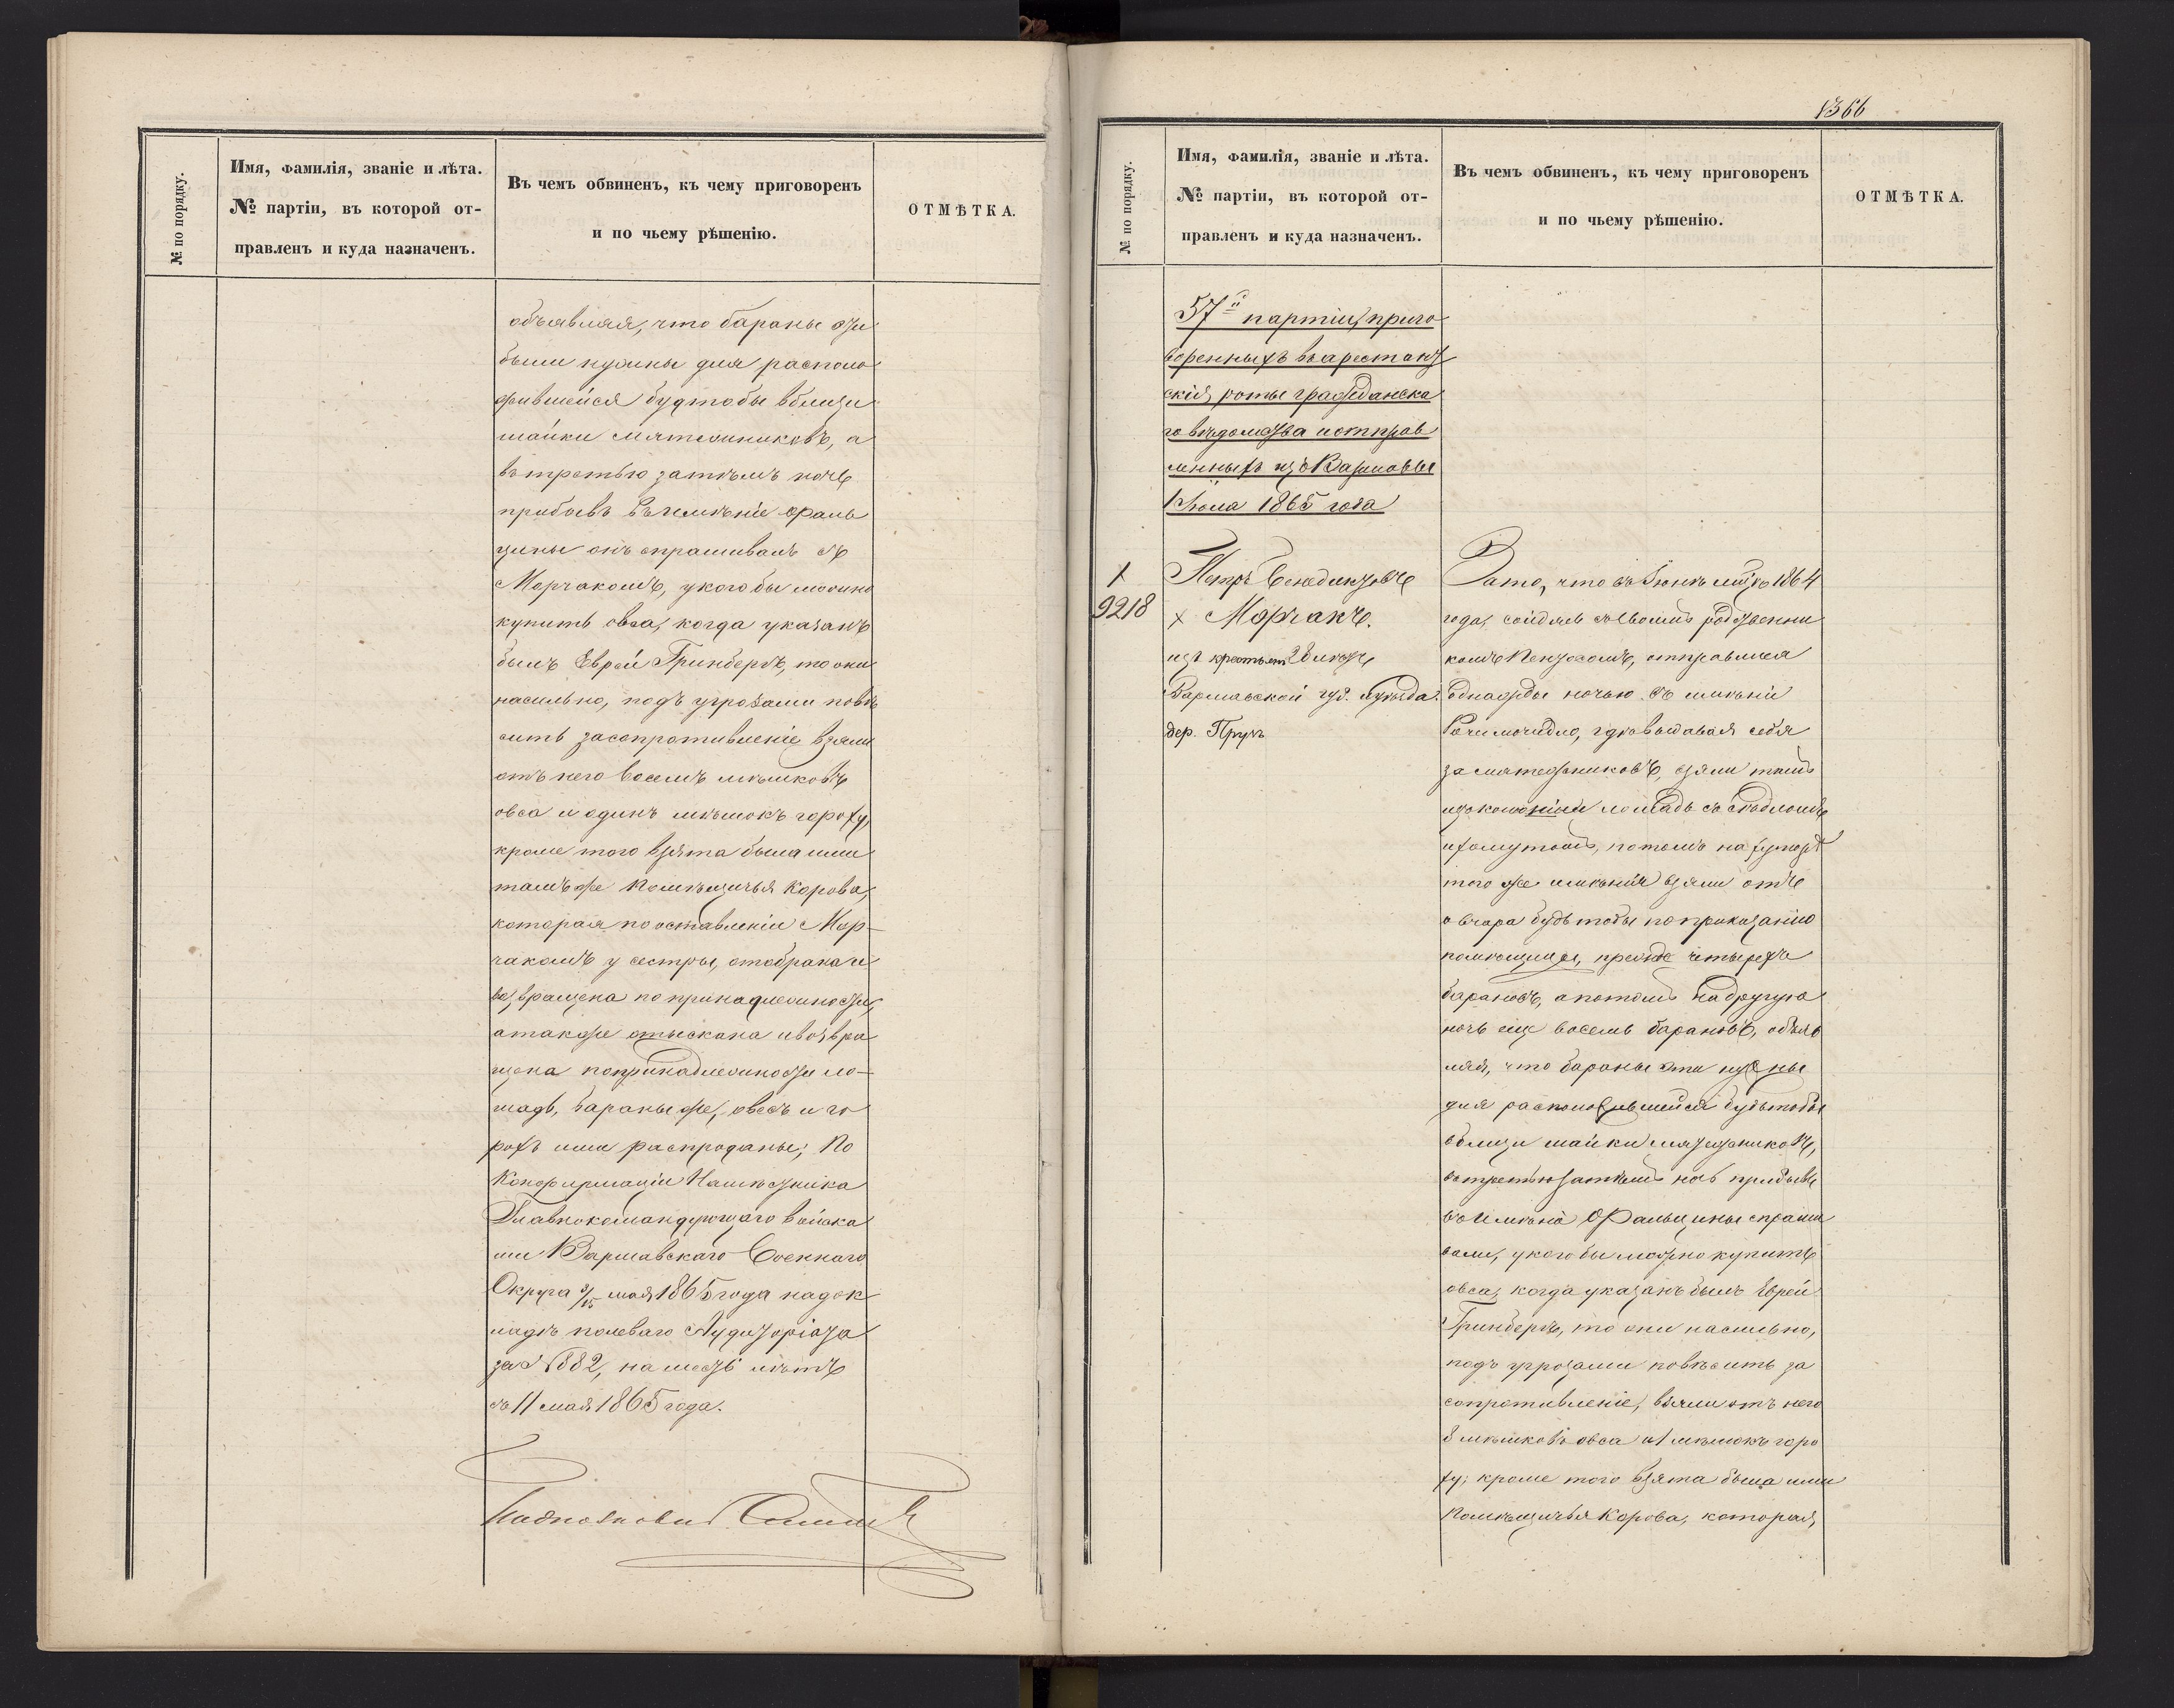 № по порядку.
Имя, фамилія, званіе и лѣта.
№ партіи, въ которой от-
правленъ и куда назначенъ.
Въ чемъ обвиненъ, къ чему приговоренъ
и по чьему рѣшенію.
ОТМѢТКА.
объявляя, что бараны эти
были нужны для располо
жившейся будто бы вблизи
шайки мятежниковъ, а
въ третью затѣмъ ночь
прибывъ въ имѣніе Фаль
цины онъ спрашивалъ съ
Марчакомъ, у кого бы можно
купить овса, когда указанъ
былъ Еврей Гринбергъ, то они
насильно, подъ угрозами повѣ
сить за сопротивленіе взяли
отъ него восемь мѣшковъ
овса и одинъ мѣшокъ гороху,
кроме того взята была ими
тамъ же помѣщичья корова,
которая по оставленіи Мар-
чакомъ у сестры, отобрана и
возвращена по принадлежности,
а также отыскана и возвра
щена по принадлежности ло-
шадь, бараны же, овесъ и го
рохъ ими распроданы; По
Конфирмаціи Намѣстника
Главнокомандующаго войска
ми Варшавскаго Военнаго
Округа 3/15 мая 1865 года на док
ладѣ полеваго Аудиторіата
за №882, на шесть лѣтъ
съ 11 мая 1865 года.
1366
№ по порядку.
Имя, фамилія, званіе и лѣта.
№ партіи, въ которой от-
правленъ и куда назначенъ.
Въ чемъ обвиненъ, къ чему приговоренъ
и по чьему рѣшенію.
ОТМѢТКА.
57й партіи, приго
воренныхъ въ арестант
скія роты гражданска
го вѣдомства и отправ
ленныхъ изъ Варшавы
1 Іюля 1865 года
1
9218
Петръ Бенедиктовъ
х Марчакъ.
изъ крестьян
Варшавской губ. уѣзда
дер.
За то, что въ Іюнѣ мцѣ 1864
года, сойдясь съ своимъ родственни
комъ, отправился
однажды ночью въ имѣніе
гдѣ выдавая себя
за мятежниковъ, взяли тамъ
изъ конюшни лошадь съ сѣдломъ
и хомутомъ, потомъ на
того же имѣнія взяли отъ
овчара будь тобы по приказанію
помѣщицы, прежде четырехъ
барановъ, а потомъ на другую
ночь еще восемь барановъ, объяв
ляя, что бараны эти нужны
для расположившейся будьтобы
вблизи шайки мятежниковъ,
въ третью затѣмъ ночь прибывъ
въ имѣніе Фальцины спраши
вали, у кого бы можно купить
овса, когда указанъ былъ Еврей
Гринбергъ, то они насильно,
подъ угрозами повѣсить за
сопротивленіе, взяли отъ него
8 мѣшковъ овса и 1 мѣшокъ горо
ху; кроме того взята была ими
помѣщичья корова, которая,